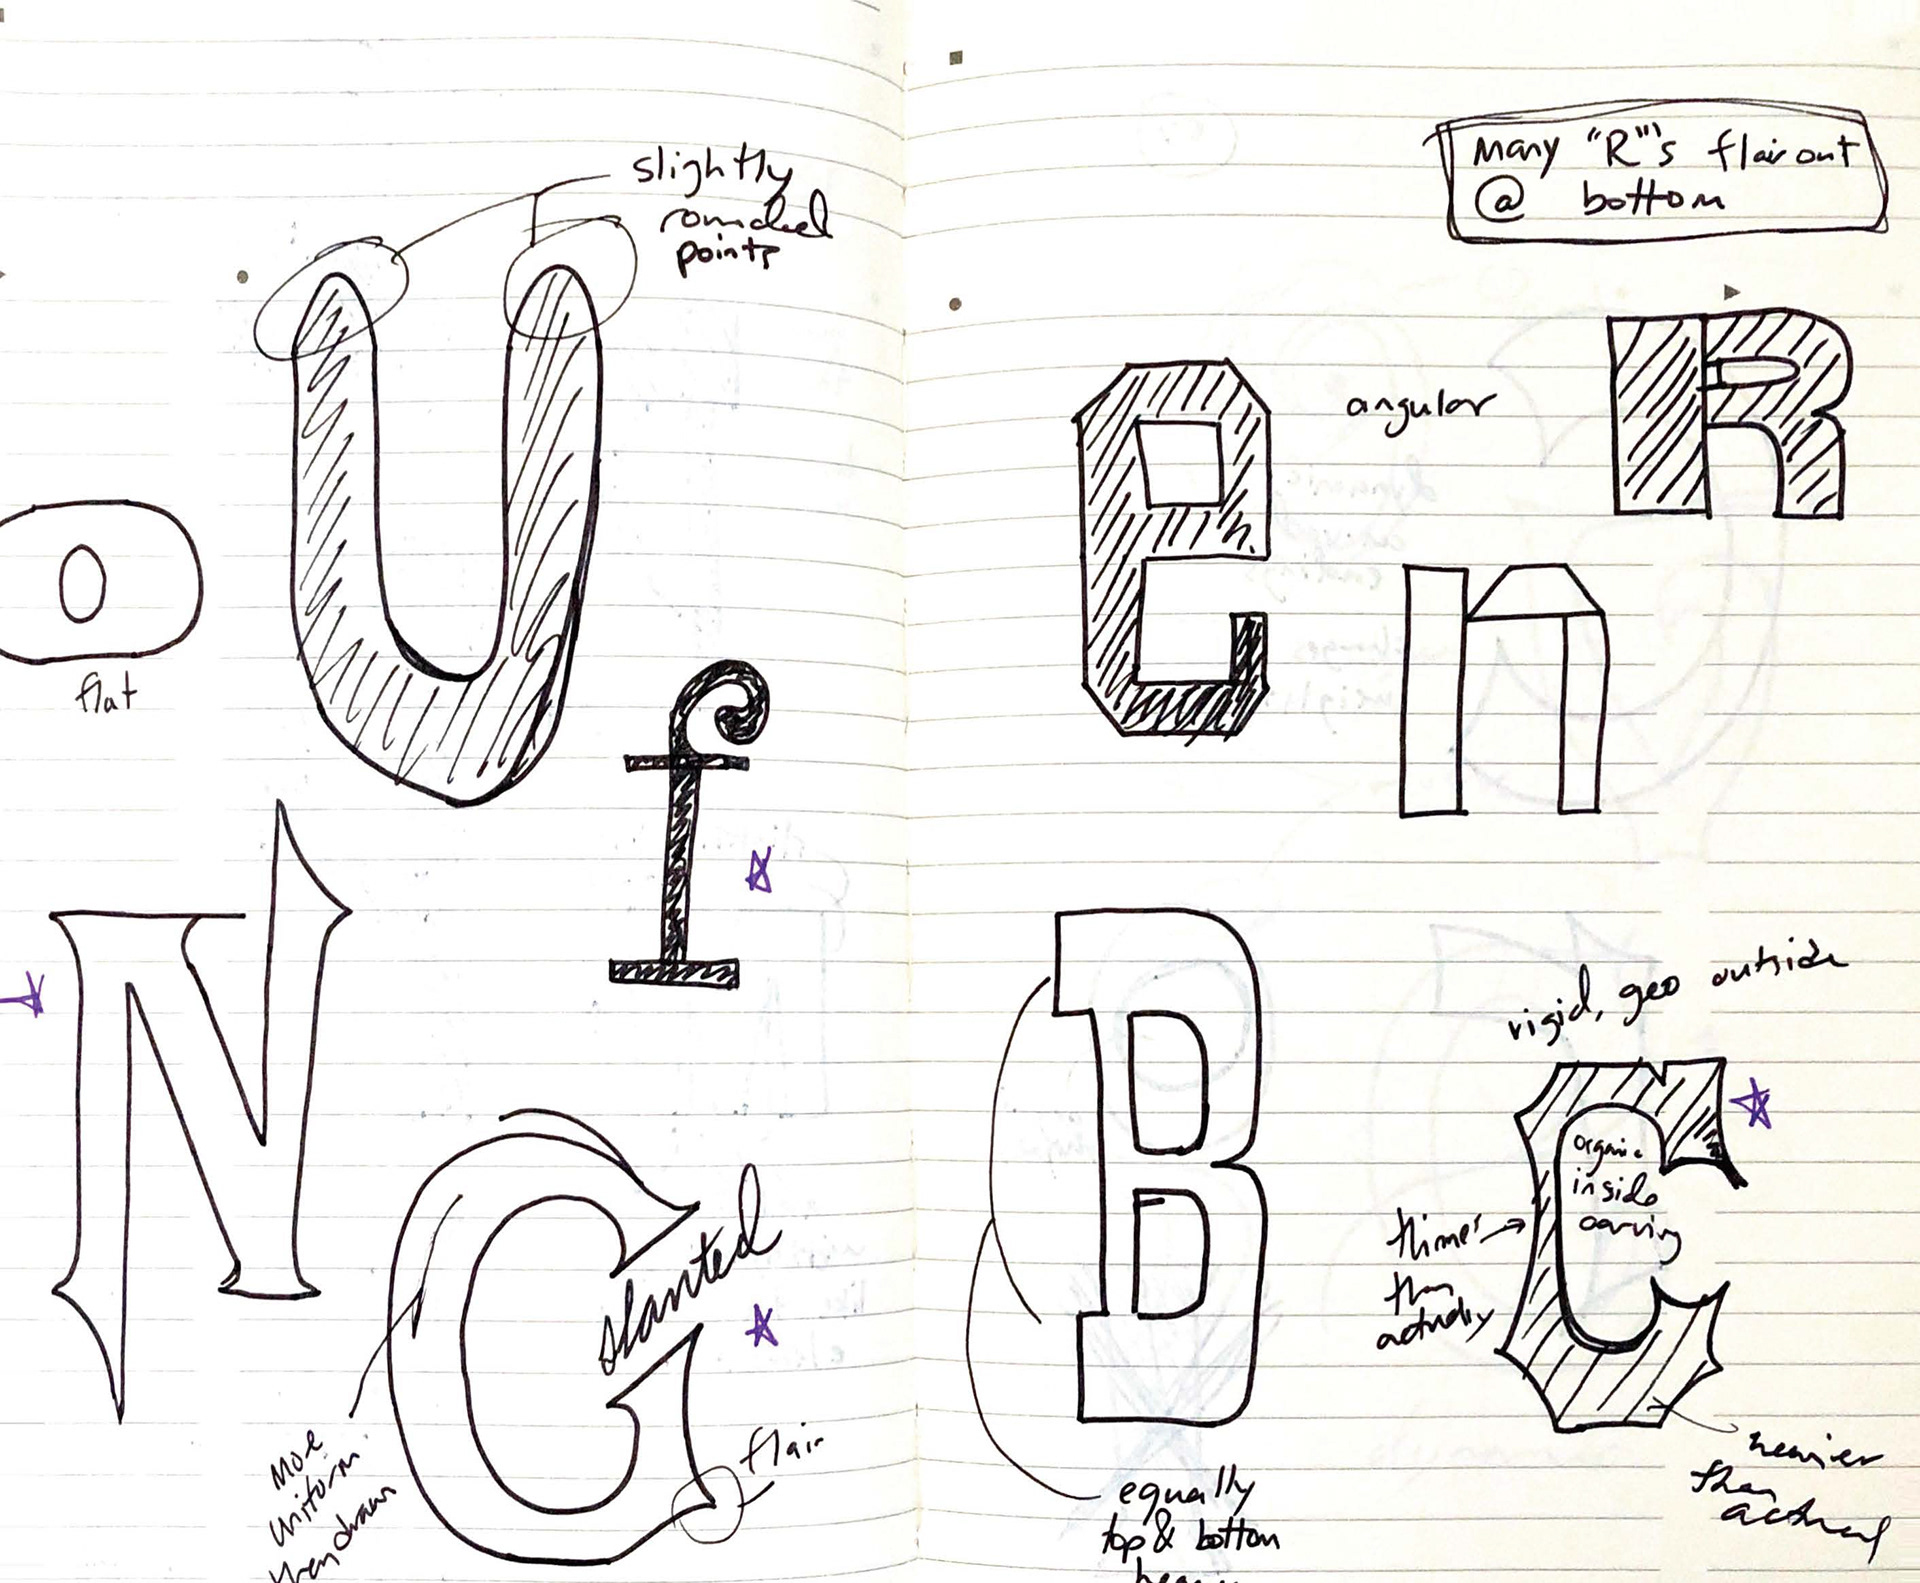 slightly
rounded
points
O
flat
U
f
N
G
slanted
flair
More
Uniform
than drawn
Many "R"'s flair out
@ bottom
e
angular
R
n
B
equally
top & bottom
heavy
rigid, geo outside
C
organic
inside
carving
thinner
than
actually
heavier
than
actual